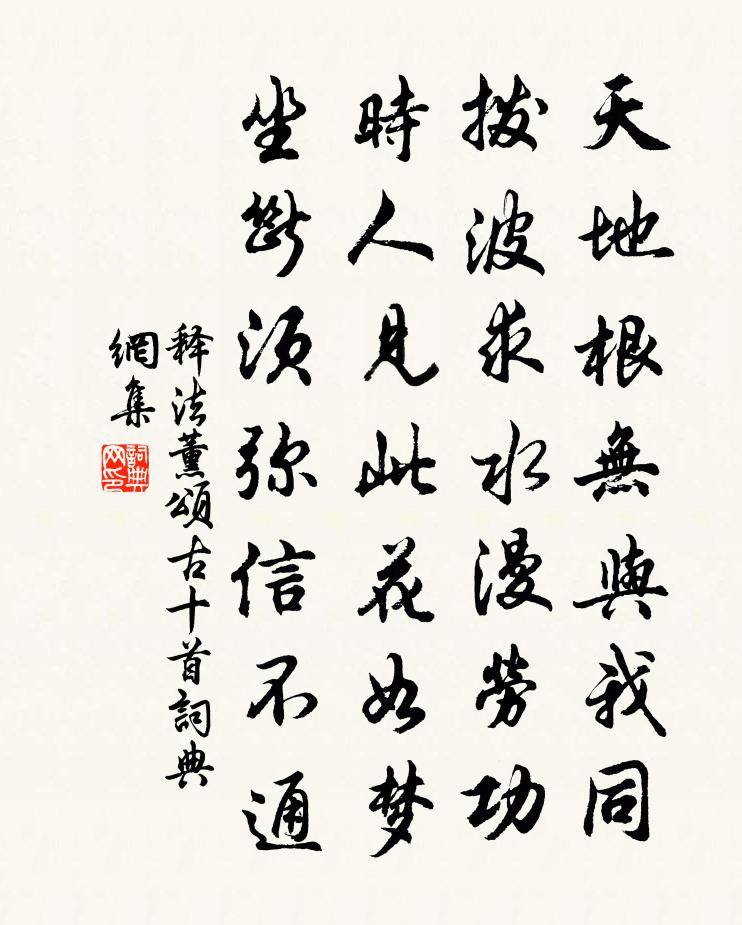 天地根無與我同
撥波求水漫勞功
時人見此花如梦
坐斷須弥信不通
释法薰頌古十首詞典
網集
詞典
网印